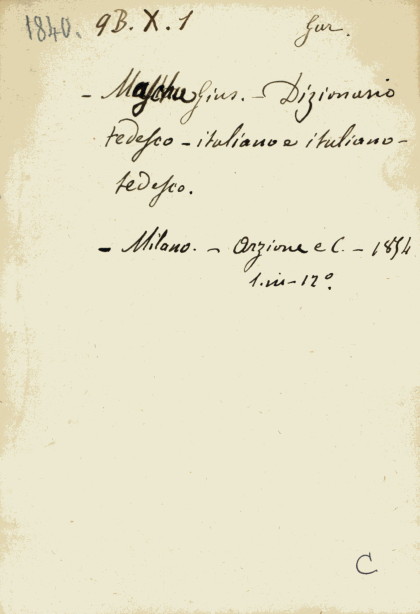 1840. 9B. X. 1 Gar.
- Maschu Gius. - Dizionario
tedesco - italiano e italiano -
tedesco.
- Milano. - Orzione e C. - 1854
1. in - 12°.
C